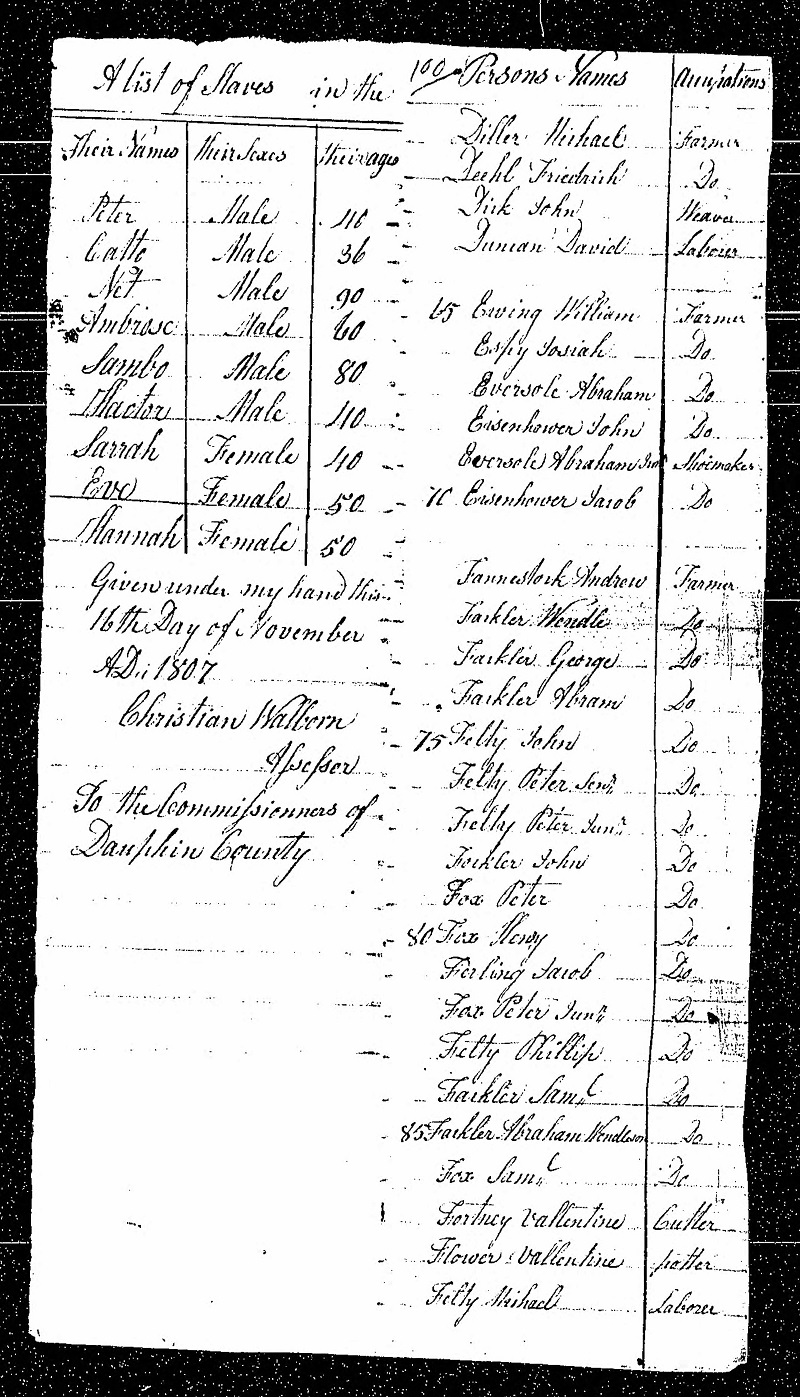 A list of Slaves in the
Their Names Their Sexes Their ages
Peter Male 40
Catto Male 36
Net Male 90
Ambrose Male 60
Sambo Male 80
Hactor Male 40
Sarrah Female 40
Eve Female 50
Hannah Female 50
Given under my hand this
16th Day of November
AD. 1807
Christian Walborn
Assessor
To the Commissionners of
Dauphin County
100 Persons Names Occupations
Diller Michael Farmer
Deehl Friedrich Do
Dirk John Weaver
Duncan David Labourer
65 Ewing William Farmer
Espy Josiah Do
Eversole Abraham Do
Eisenhower John Do
Eversole Abraham Shoemaker
70 Eisenhower Jacob Do
Fannestock Andrew Farmer
Fackler Wendle Do
Fackler George Do
Fackler Abram Do
75 Felty John Do
Felty Peter Senr Do
Felty Peter Junr Do
Fockler John Do
Fox Peter Do
80 Fox Henry Do
Ferling Jacob Do
Fox Peter Junr Do
Felty Phillip Do
Fackler Saml Do
85 Fackler Abraham Wendleson Do
Fox Saml Do
Fortney Vallentine Cutler
Flower Vallentine potter
Felty Michael Laborer